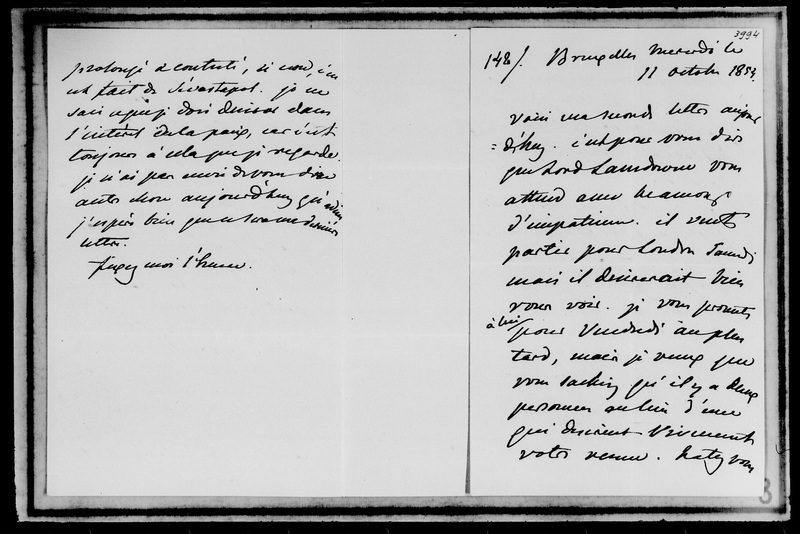 3994
148/. Bruxelles mercredi le
11 octobre 1854.
Voici ma seconde lettre aujour
=d'huy. c'est pour vous dire
que Lord Lansdowne vous
attend avec beaucoup
d'impatience. il veut
partir pour Londres Samedi
mais il desirerait bien
vous voir. je vous promets
à lui pour Vendredi au plus
tard, mais je veux que
vous sachiez qu'il y a deux
personnes au lieu d'une
qui desirent vivement
votre venue. hatez vous
3
prolongé a contesté, si non, c'en
est fait de Sévastopol. je ne
sais ce que je dois desirer dans
l'intérêt de la paix, car c'est
toujours à cela que je regarde.
je n'ai pas envie de vous dire
autre chose aujourd'huy qu'adieu
j'espère bien que ce sera ma dernière
lettre.
 moi l'heure.